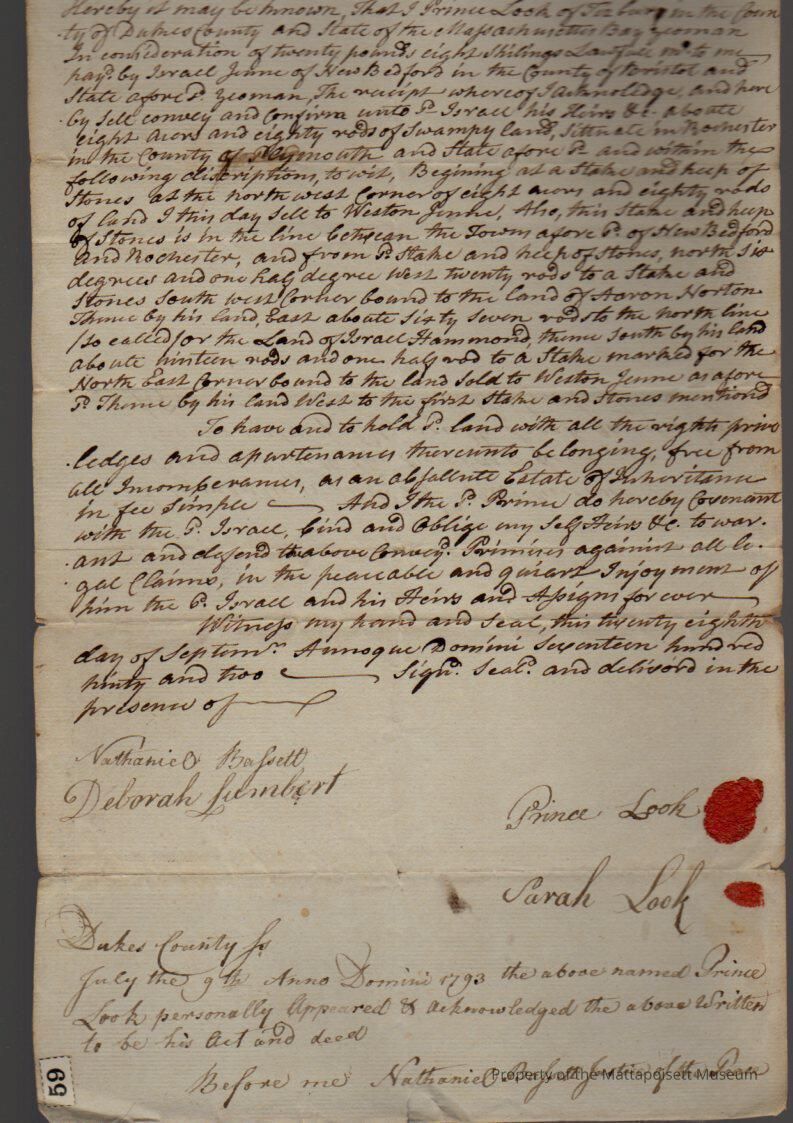 Hereby it may be known, That I Prince Look of Tisbury in the Coun
ty of Dukes County and State of the Massachusetts Bay yeoman
In consideration of twenty pounds eight shilings Lawfull to me
payd. by Israel Jenne of New Bedford in the County of Bristol and
State afore sd. yeoman, The receipt whereof I acknoledge, and here
by Sell convey and Confirm unto sd. Israel his Heirs &c. aboute
eight acors and eighty rods of Swampy land, Sittuate in Rochester
in the County of Plymouth and State afore sd. and within the
following discriptions, to wit, Begining at a Stake and heep of
Stones at the north west Corner of eight acors and eighty rods
of land I this day Sell to Weston Jenne, Also, this Stake and heep
of Stones is in the line between the Towns afore sd. of New Bedford
and Rochester, and from sd. Stake and heep of Stones, north Six
degrees and one half degree West twenty rods to a Stake and
Stones South west Corner bound to the land of Aaron Norton
Thence by his land, East aboute Sixty Seven rods to the north line
/so called/ or the Land of Israel Hammond, thence South by his land
aboute ninteen rods and one half rod to a Stake marked for the
North East Corner bound to the land Sold to Weston Jenne as afore
sd. Thence by his land West to the first Stake and Stones mentiond
To have and to hold sd. land with all the rights prive
ledges and apurtenances thereunto belonging, free from
all Incomberances, as an absallute Estate of Inheritance
in fee Simple And I the sd. Prince do hereby Covenant
with the sd. Israel, bind and Oblige my Self Heirs &c. to war.
ant and defend the above Conveyd. Primises against all le.
gal Claims, in the peaceable and quiart Injoyment of
him the sd. Israel and his Heirs and Assigns for ever
Witness my hand and Seal, this twenty eighth
day of Septemr. Annoque Domini Seventeen hundred
ninty and two Signd. Seald. and deliverd in the
presence of
Nathaniel Bassett
Deborah Lumbert
Prince Look
Sarah Look
Dukes County Ss
July the 9th Anno Domini 1793 the above named Prince
Look personally Appeared & acknowledged the above Written
to be his Act and deed
Before me Nathaniel Bassett Justice of the Peace
59
Property of the Mattapoisett Museum